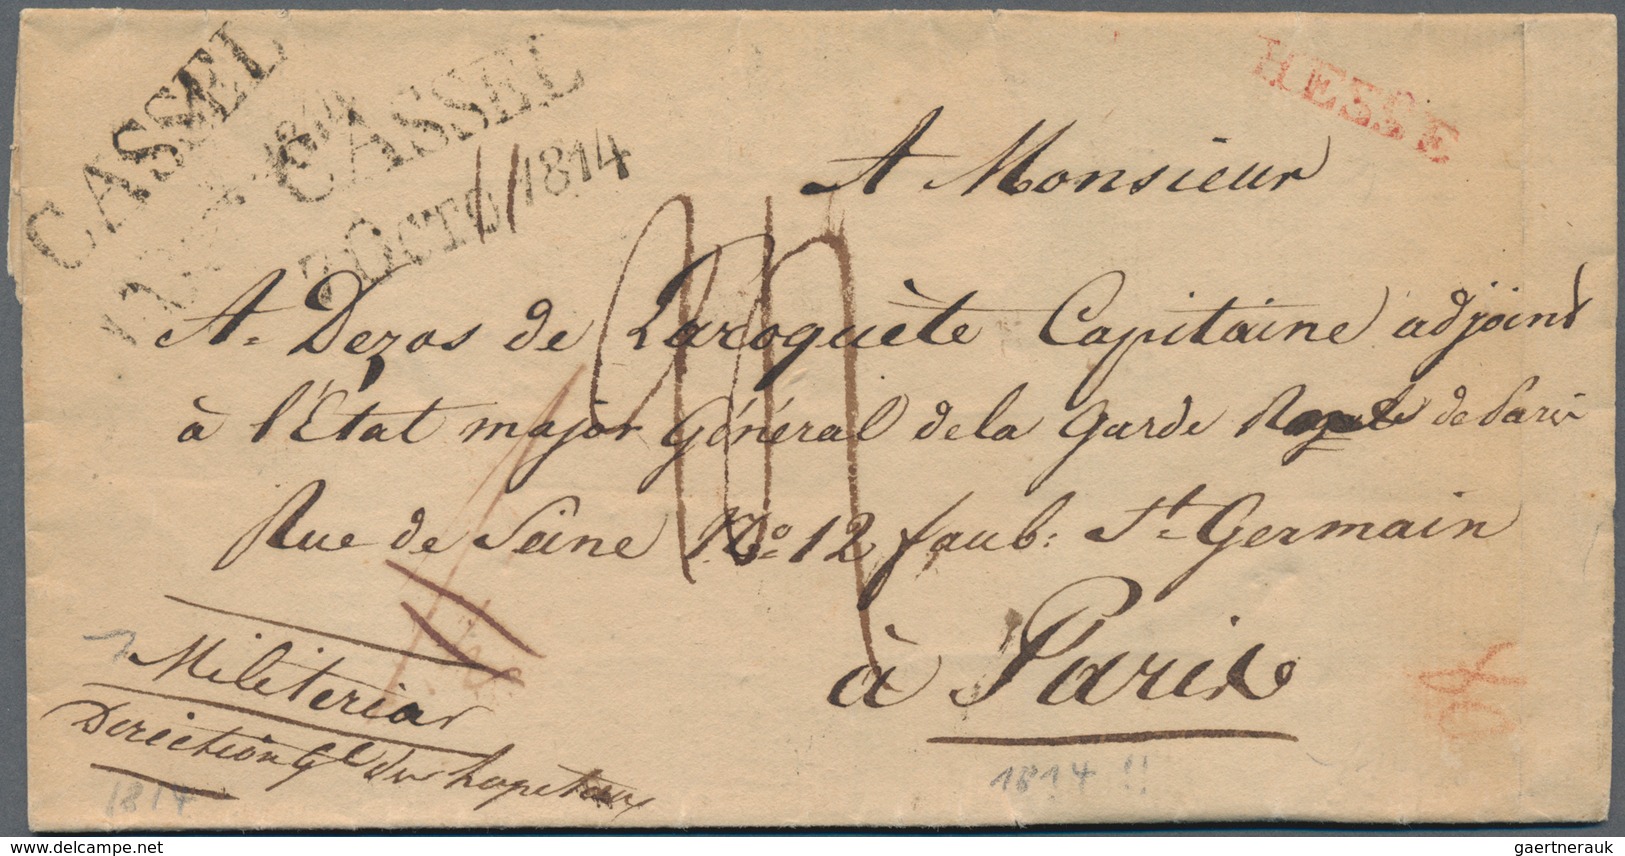 CASSEL
1814
CASSEL
7 OCTO 1814
HESSE
A Monsieur
A. Dezos de Laroquète Capitaine adjoint
à l'Etat major Général de la Garde de Paris
Rue de Seine No. 12 faub: St. Germain
à Paris
Militeriar
Direction Gl des hopetaux
1814
1814 !!
www.delcampe.net
gaertnerauk